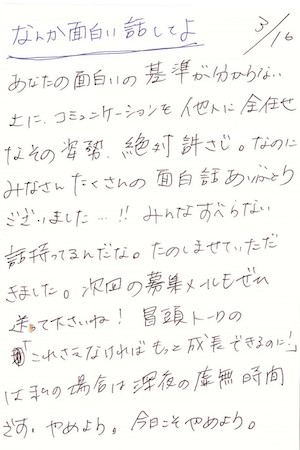 なんか面白い話してよ 3/16
あなたの面白いの基準が分からない
上に、コミュニケーションを他人に全任せ
なその姿勢、絶対許さじ。なのに
みなさんたくさんの面白話ありがとう
ございました…!! みんなすべらない
話持ってるんだな。たのしませていただ
きました。次回の募集メールもぜひ
送って下さいね! 冒頭トークの
「これさえなければもっと成長できるのに!」
は私の場合は深夜の虚無時間
です。やめよう。今日こそやめよう。